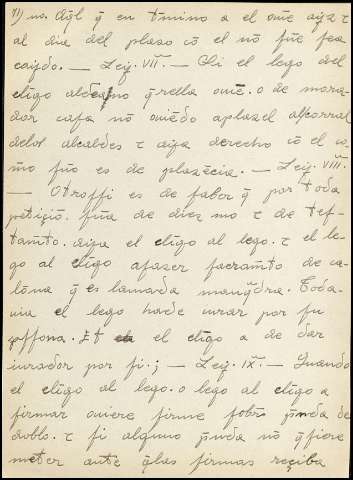 11) no. Aq̃l q̃ en tr̃mino a el ouie aya τ
al dia del plazo cõ el no fũe fea
caydo. — Ley. VII.ª — Si el lego del
cl̃igo aldeano q̃rella ouie. o de mora-
dor cafa no ouiedo aplazel al corral
delos alcaldes τ aya derecho cõ el co-
mo fũo es de plazẽcia. — Ley. VIII.ª
— Otroffi es de faber q̃ por toda
petiçiõ. fũa de diez mo τ de tef-
tamẽto. aya el cl̃igo al lego. τ el le-
go al cl̃igo afazer facramẽto de ca-
lõna q̃ es lamada manq̃dra. Toda-
uia el lego hade iurar por fu
pſſona. Et el cl̃igo a de dar
iurador por fi.; — Ley. IX.ª — Quando
el cl̃igo al lego. o lego al cl̃igo a
firmar ouiere firme fobr̃ p̃nda de
doblo. τ fi alguno p̃nda no q̃fiere
meter ante q̃las firmas reçiba